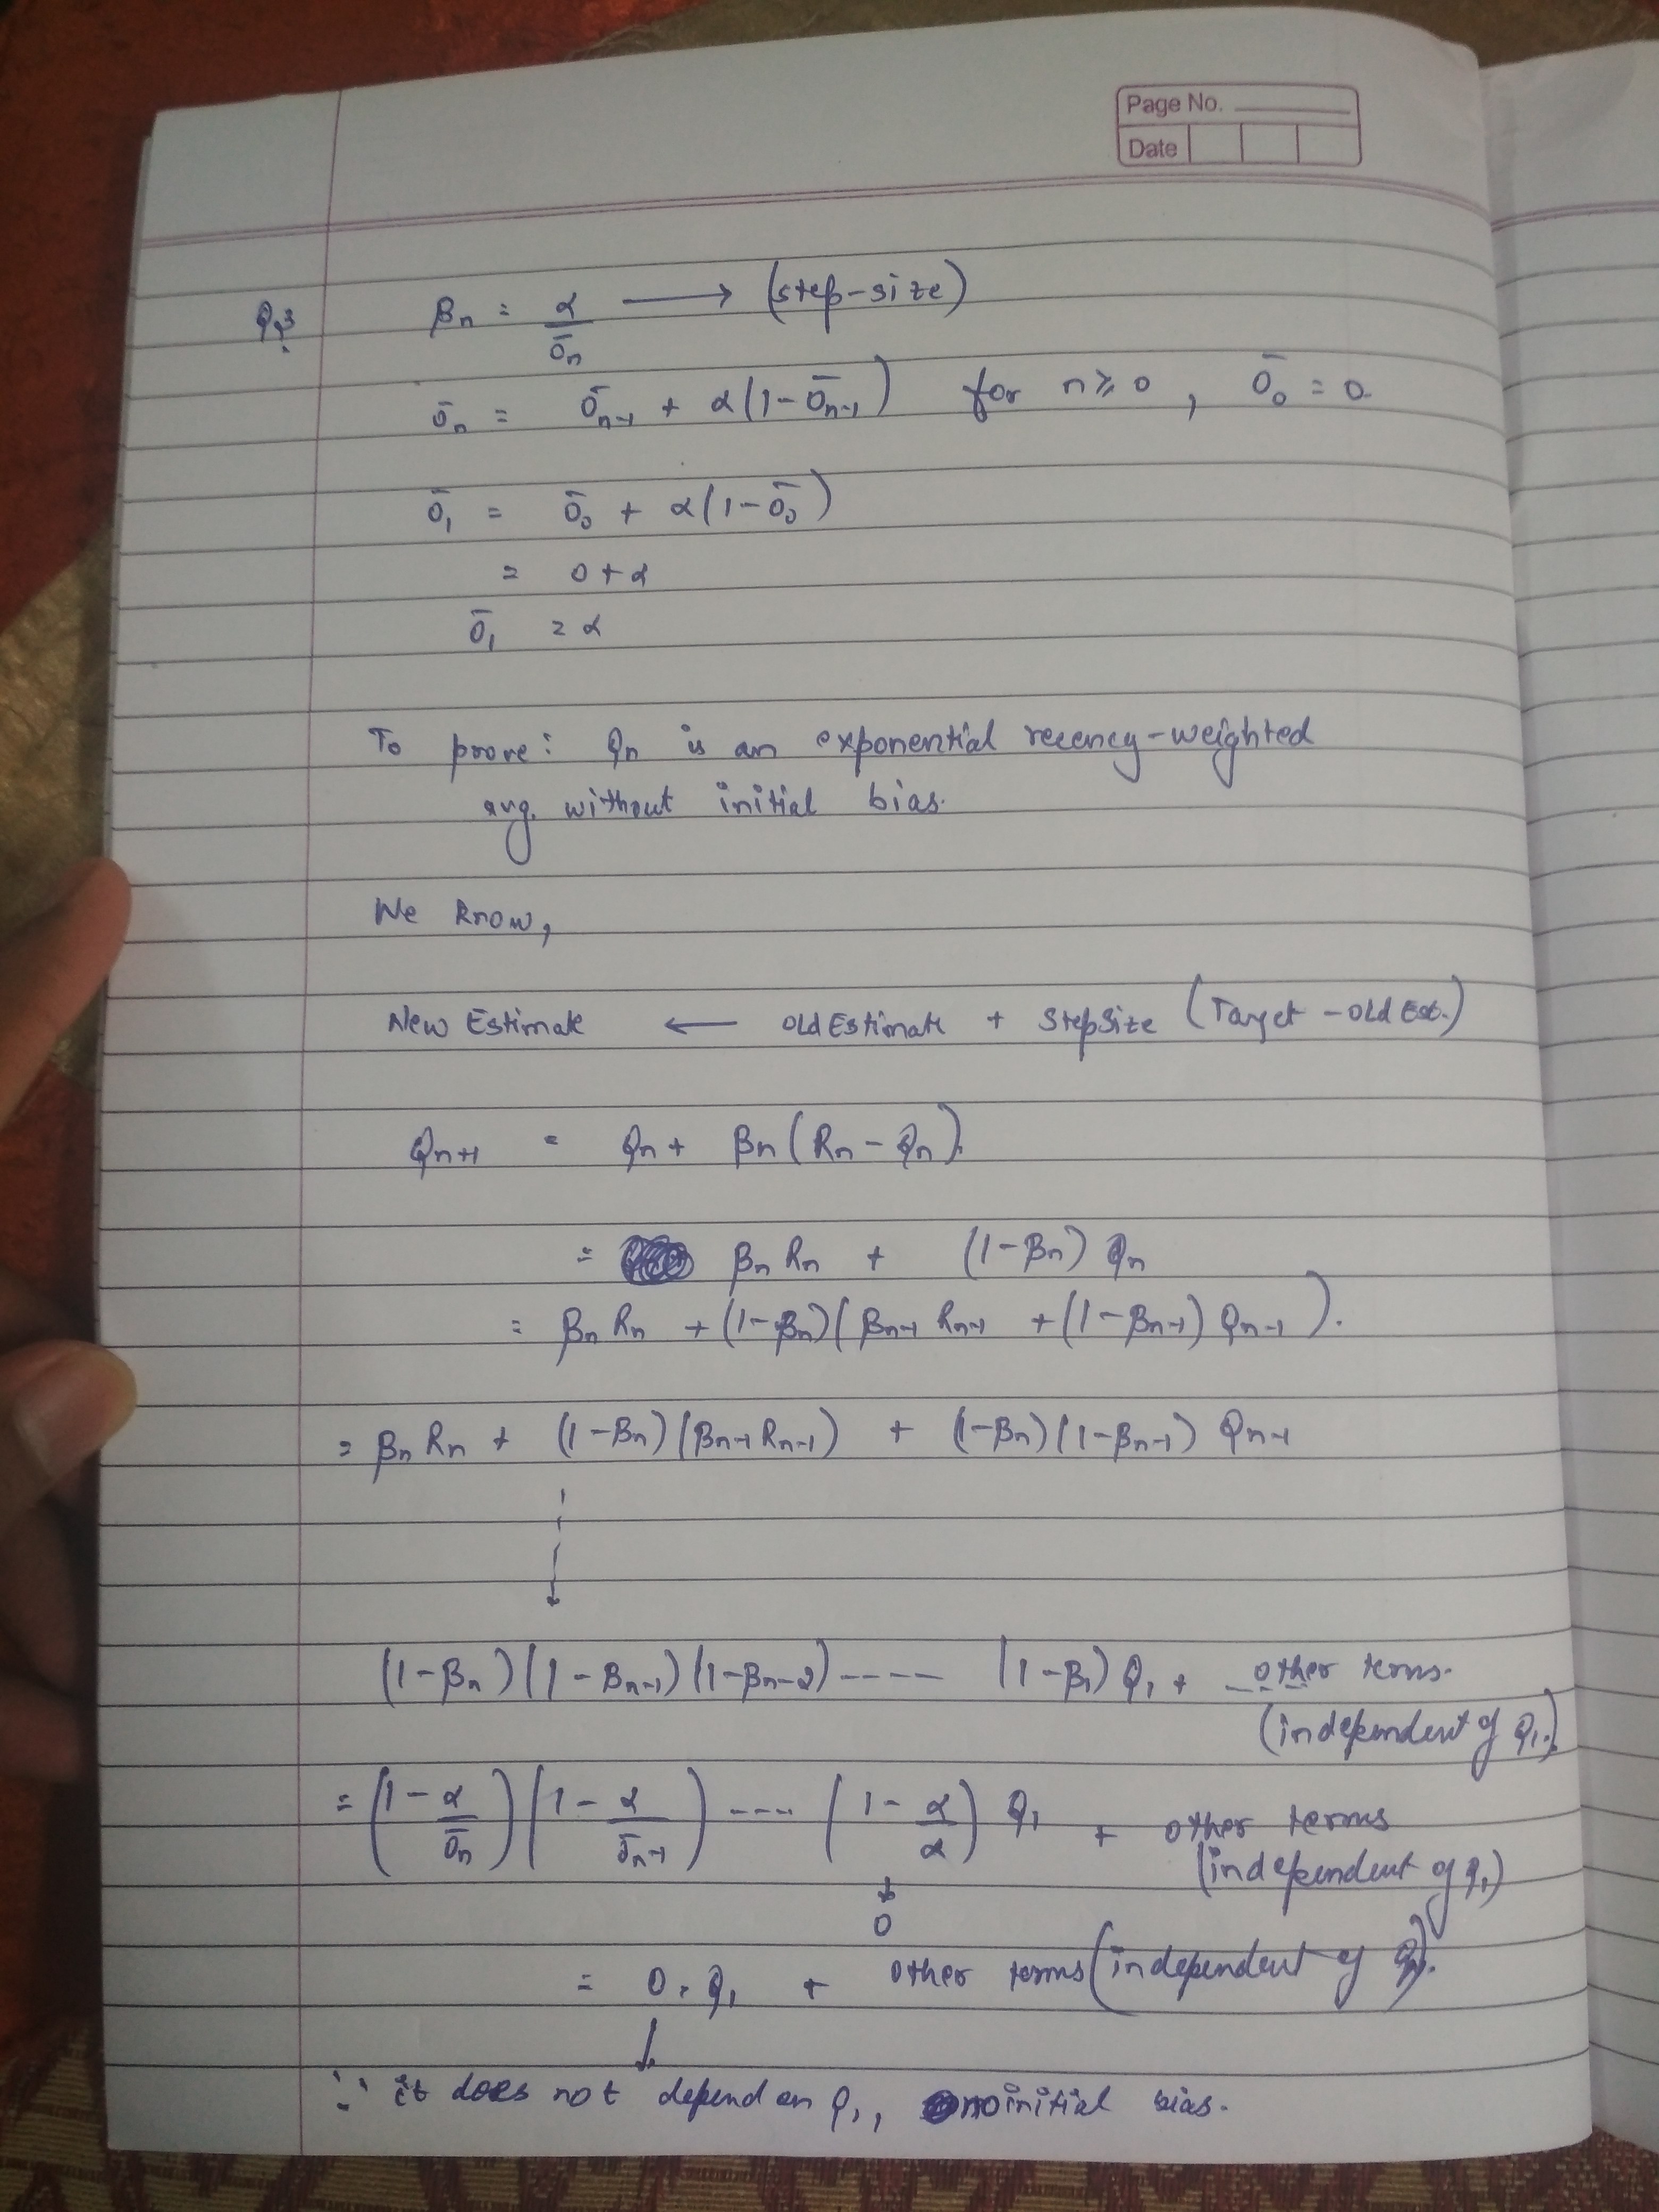 Page No.
Date
Q3. βn = α/ōn ⟶ (step-size)
ōn = ōn-1 + α(1-ōn-1) for n ≥ 0, ō0 = 0.
ō1 = ō0 + α(1-ō0)
= 0 + α
ō1 = α
To prove: Qn is an exponential recency-weighted
avg. without initial bias.
We know,
New Estimate ← Old Estimate + Step Size (Target - Old Est.)
Qn+1 = Qn + βn(Rn - Qn).
= βn Rn + (1-βn) Qn
= βn Rn + (1-βn)(βn-1 Rn-1 + (1-βn-1) Qn-1).
= βn Rn + (1-βn)(βn-1 Rn-1) + (1-βn)(1-βn-1) Qn-1
(1-βn)(1-βn-1)(1-βn-2) ---- (1-β1) Q1 + other terms.
(independent of Q1.)
= (1-α/ōn)(1-α/ōn-1) ---- (1-α/α) Q1 + other terms
(independent of Q1)
↓
0
= 0.Q1 + other terms (independent of Q1).
∵ it does not depend on Q1, no initial bias.